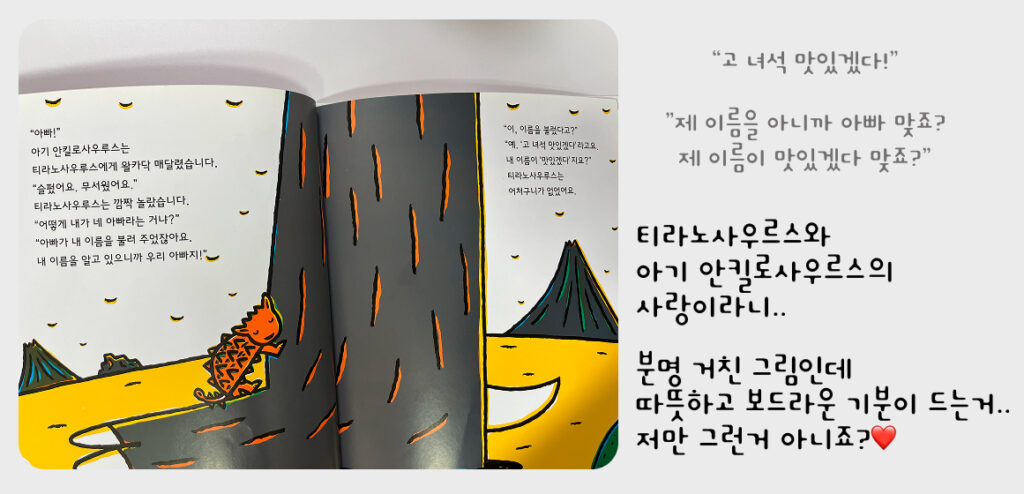 “아빠!”
아기 안킬로사우루스는
티라노사우루스에게 왈카닥 매달렸습니다.
“슬펐어요. 무서웠어요.”
티라노사우루스는 깜짝 놀랐습니다.
“어떻게 내가 네 아빠라는 거냐?”
“아빠가 내 이름을 불러 주었잖아요.
내 이름을 알고 있으니까 우리 아빠지!”
“이, 이름을 불렀다고?”
“예, ‘고 녀석 맛있겠다’라고요.
내 이름이 ‘맛있겠다’지요?”
티라노사우루스는
어처구니가 없었어요.
“고 녀석 맛있겠다!”
”제 이름을 아니까 아빠 맞죠?
제 이름이 맛있겠다 맞죠?”
티라노사우르스와
아기 안킬로사우르스의
사랑이라니..
분명 거친 그림인데
따뜻하고 보드라운 기분이 드는거..
저만 그런거 아니죠?❤️